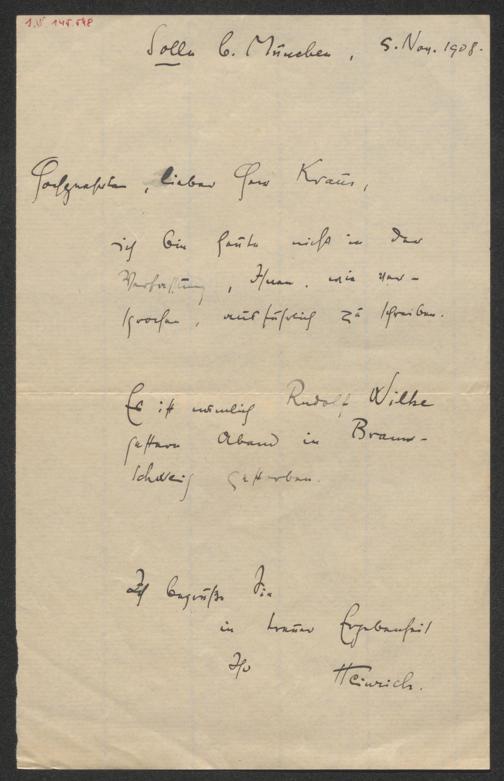 I.N 145.548
Solln b. München, 5. Nov. 1908.
Hochgeehrter, lieber Herr Kraus,
ich bin heute nicht in der
Verfassung, Ihnen, wie ver-
sprochen, ausführlich zu schreiben.
Es ist nämlich Rudolf Wilke
gestern Abend in Braun-
schweig gestorben.
Ich begrüße Sie
in treuer Ergebenheit
Ihr Heinrich.